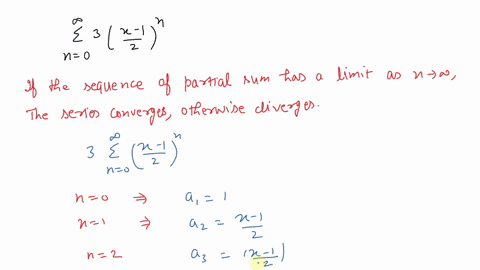 ∞
Σ 3 ( (x-1)/2 )^n
n=0
If the sequence of partial sum has a limit as n→∞,
The series converges, otherwise diverges.
3 ∞Σn=0 ( (x-1)/2 )^n
n=0 ⇒ a₁ = 1
n=1 ⇒ a₂ = (x-1)/2
n=2 a₃ = ( (x-1)/2 )